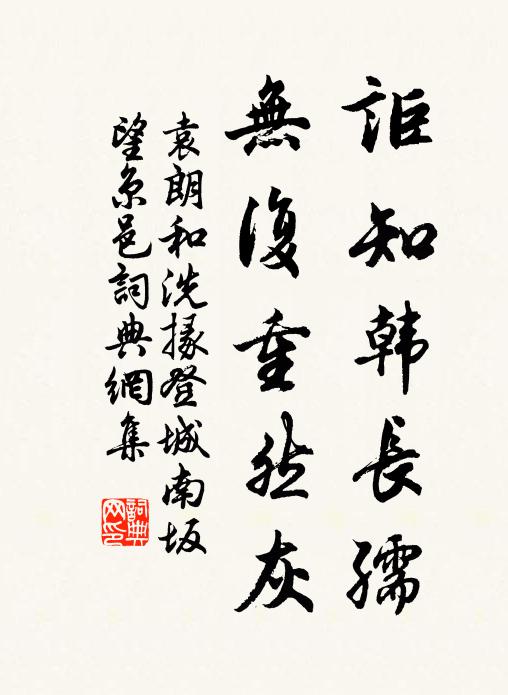 詎知韩長孺
無復重然灰
袁朗和洗掾登城南坂
望京邑詞典網集
詞典网印